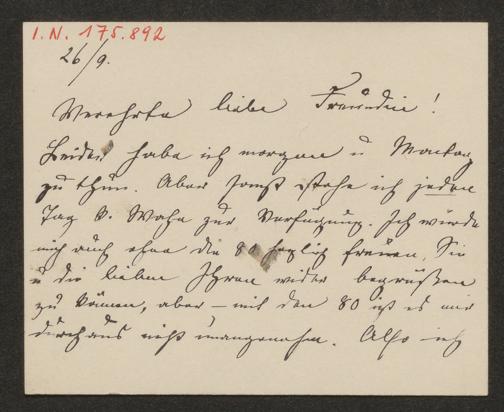 I. N. 175.892
26/9.
Verehrte liebe Freundin!
Leider habe ich morgen u Montag
zu thun. Aber sonst stehe ich jeden
Tag d. Woche zur Verfügung. Ich würde
mich auch ohne die 80 herzlich freuen, Sie
u die lieben Ihren wieder begrüßen
zu können, aber – mit den 80 ist es mir
durchaus nicht unangenehm. Also ich